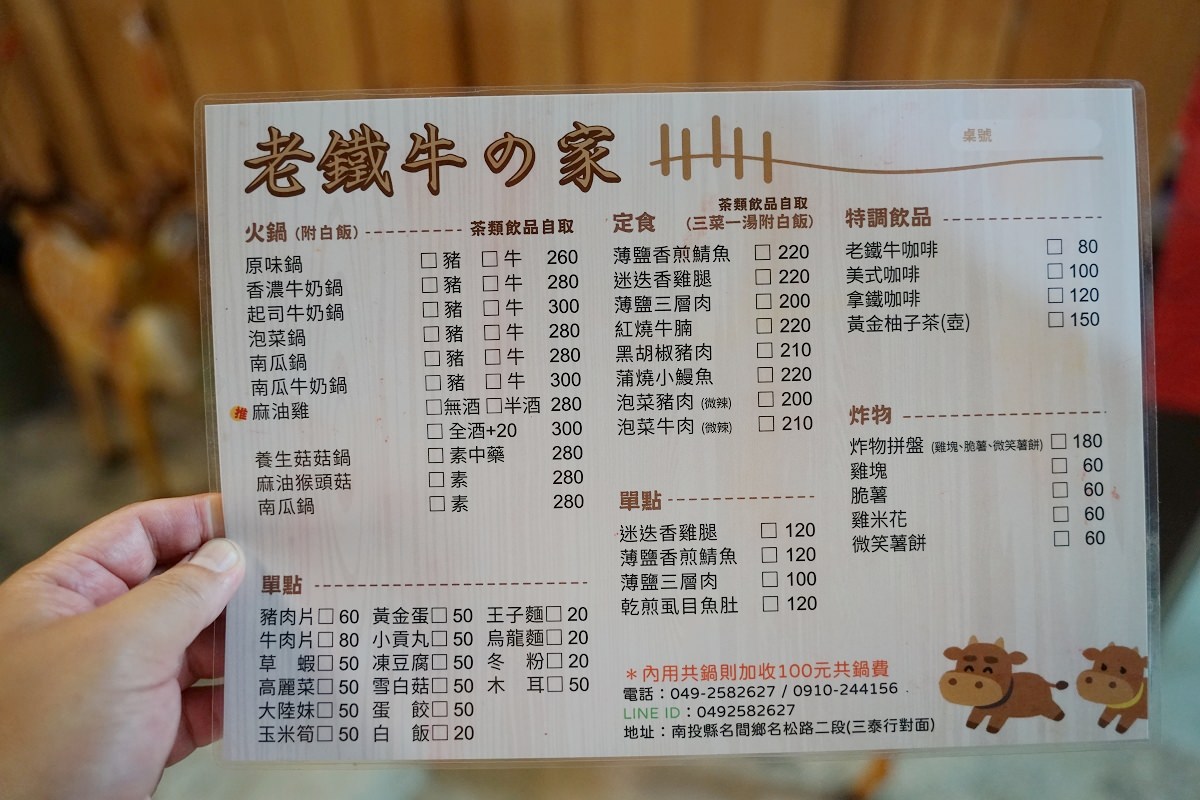 老鐵牛の家
桌號
火鍋 (附白飯) 茶類飲品自取
原味鍋 □ 豬 □ 牛 260
香濃牛奶鍋 □ 豬 □ 牛 280
起司牛奶鍋 □ 豬 □ 牛 300
泡菜鍋 □ 豬 □ 牛 280
南瓜鍋 □ 豬 □ 牛 280
南瓜牛奶鍋 □ 豬 □ 牛 300
推 麻油雞 □無酒 □半酒 280
□ 全酒+20 300
養生菇菇鍋 □ 素中藥 280
麻油猴頭菇 □ 素 280
南瓜鍋 □ 素 280
單點
豬肉片□ 60 黃金蛋□ 50 王子麵□ 20
牛肉片□ 80 小貢丸□ 50 烏龍麵□ 20
草 蝦□ 50 凍豆腐□ 50 冬 粉□ 20
高麗菜□ 50 雪白菇□ 50 木 耳□ 50
大陸妹□ 50 蛋 餃□ 50
玉米筍□ 50 白 飯□ 20
茶類飲品自取
定食 (三菜一湯附白飯)
薄鹽香煎鯖魚 □ 220
迷迭香雞腿 □ 220
薄鹽三層肉 □ 200
紅燒牛腩 □ 220
黑胡椒豬肉 □ 210
蒲燒小鰻魚 □ 220
泡菜豬肉 (微辣) □ 200
泡菜牛肉 (微辣) □ 210
單點
迷迭香雞腿 □ 120
薄鹽香煎鯖魚 □ 120
薄鹽三層肉 □ 100
乾煎虱目魚肚 □ 120
特調飲品
老鐵牛咖啡 □ 80
美式咖啡 □ 100
拿鐵咖啡 □ 120
黃金柚子茶(壺) □ 150
炸物
炸物拼盤 (雞塊、脆薯、微笑薯餅) □ 180
雞塊 □ 60
脆薯 □ 60
雞米花 □ 60
微笑薯餅 □ 60
＊內用共鍋則加收100元共鍋費
電話：049-2582627 / 0910-244156
LINE ID：0492582627
地址：南投縣名間鄉名松路二段(三泰行對面)